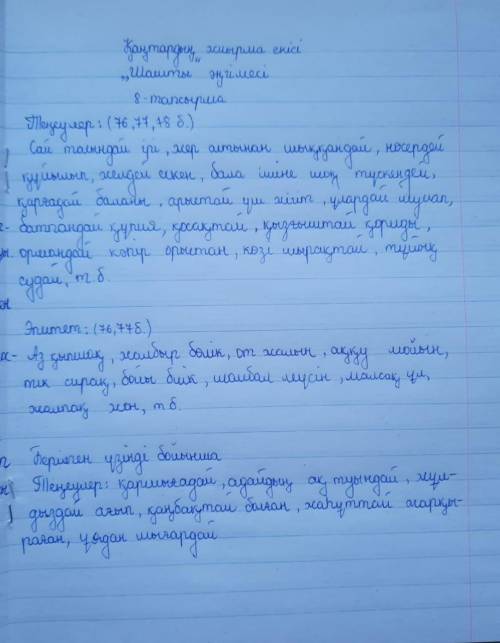 Қаңтардың жиырма екісі
"Шашты әңгімесі
8-тапсырма
Теңеулер: (76,77,78 б.)
Сай тасындай ірі, жер астынан шыққандай, нөсердей
құйылып, желдей ескен, бала ішіне шоқ түскендей,
қарғадай баланы, арыстай үш жігіт, ұлардай шулап,
батпандай құрия, қосақтай, қызғыштай қориды,
ормандай көпір орыстан, көзі шырақтай, тұйық
судай, т.б.
Эпитет: (76,77б.)
Аз қыпшақ, жалбыр бөлік, от жалын, аққу мойын,
тік сирақ, бойы биік, шомбал мүсін, малсақ ұл,
жалпақ жон, т б.
Берілген үзінді бойынша
Теңеулер: қаршығадай, адайдың ақ туындай, жұл-
дыздай ағып, қаңбақтай болған, жақұттай жарқы-
раған, ұядан шығардай